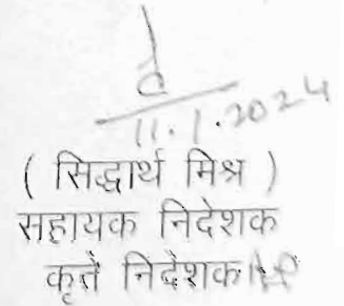 11.1.2024
( सिद्धार्थ मिश्र )
सहायक निदेशक
कृतें निदेशक